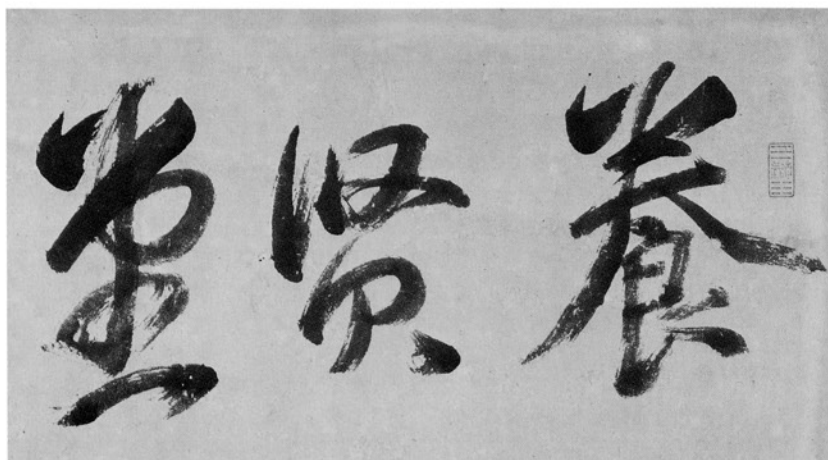 養賢堂